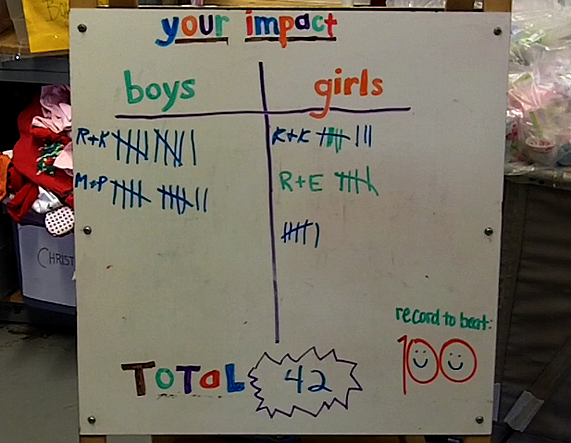 your impact
boys girls
R+K K+K
M+P R+E
CHRIST
record to beat:
100
TOTAL 42